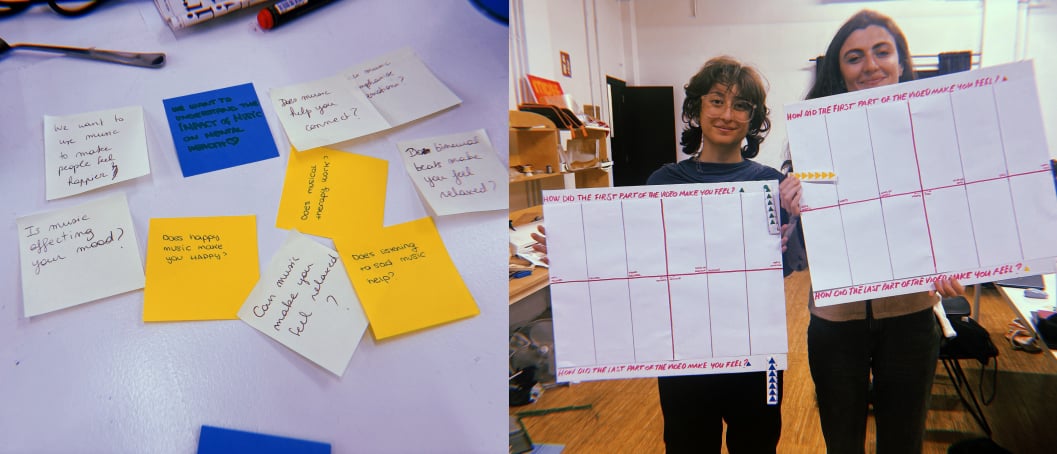 We want to
use music
to make
people feel
happier!
WE WANT TO
UNDERSTAND THE
IMPACT OF MUSIC
ON MENTAL
HEALTH
Does music
help you
connect?
music
Does binaural
beats make
you feel
relaxed?
Does musical
therapy work?
Is music
affecting
your mood?
Does happy
music make
you HAPPY?
Can music
make you
feel relaxed
?
Does listening
to sad music
help?
HOW DID THE FIRST PART OF THE VIDEO MAKE YOU FEEL?
HOW DID THE LAST PART OF THE VIDEO MAKE YOU FEEL?
HOW DID THE FIRST PART OF THE VIDEO MAKE YOU FEEL?
HOW DID THE LAST PART OF THE VIDEO MAKE YOU FEEL?